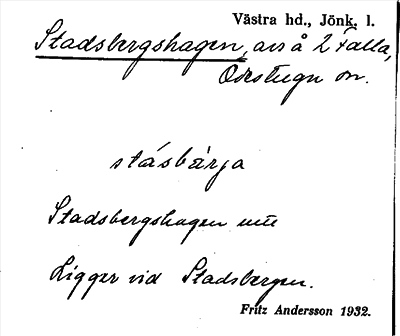 Västra hd., Jönk. l.
Stadsbergshagen, avs å 2 Falla,
Ödestugu sn.
stásbärja
Stadsbergshagen
Ligger vid Stadsbergen.
Fritz Andersson 1932.